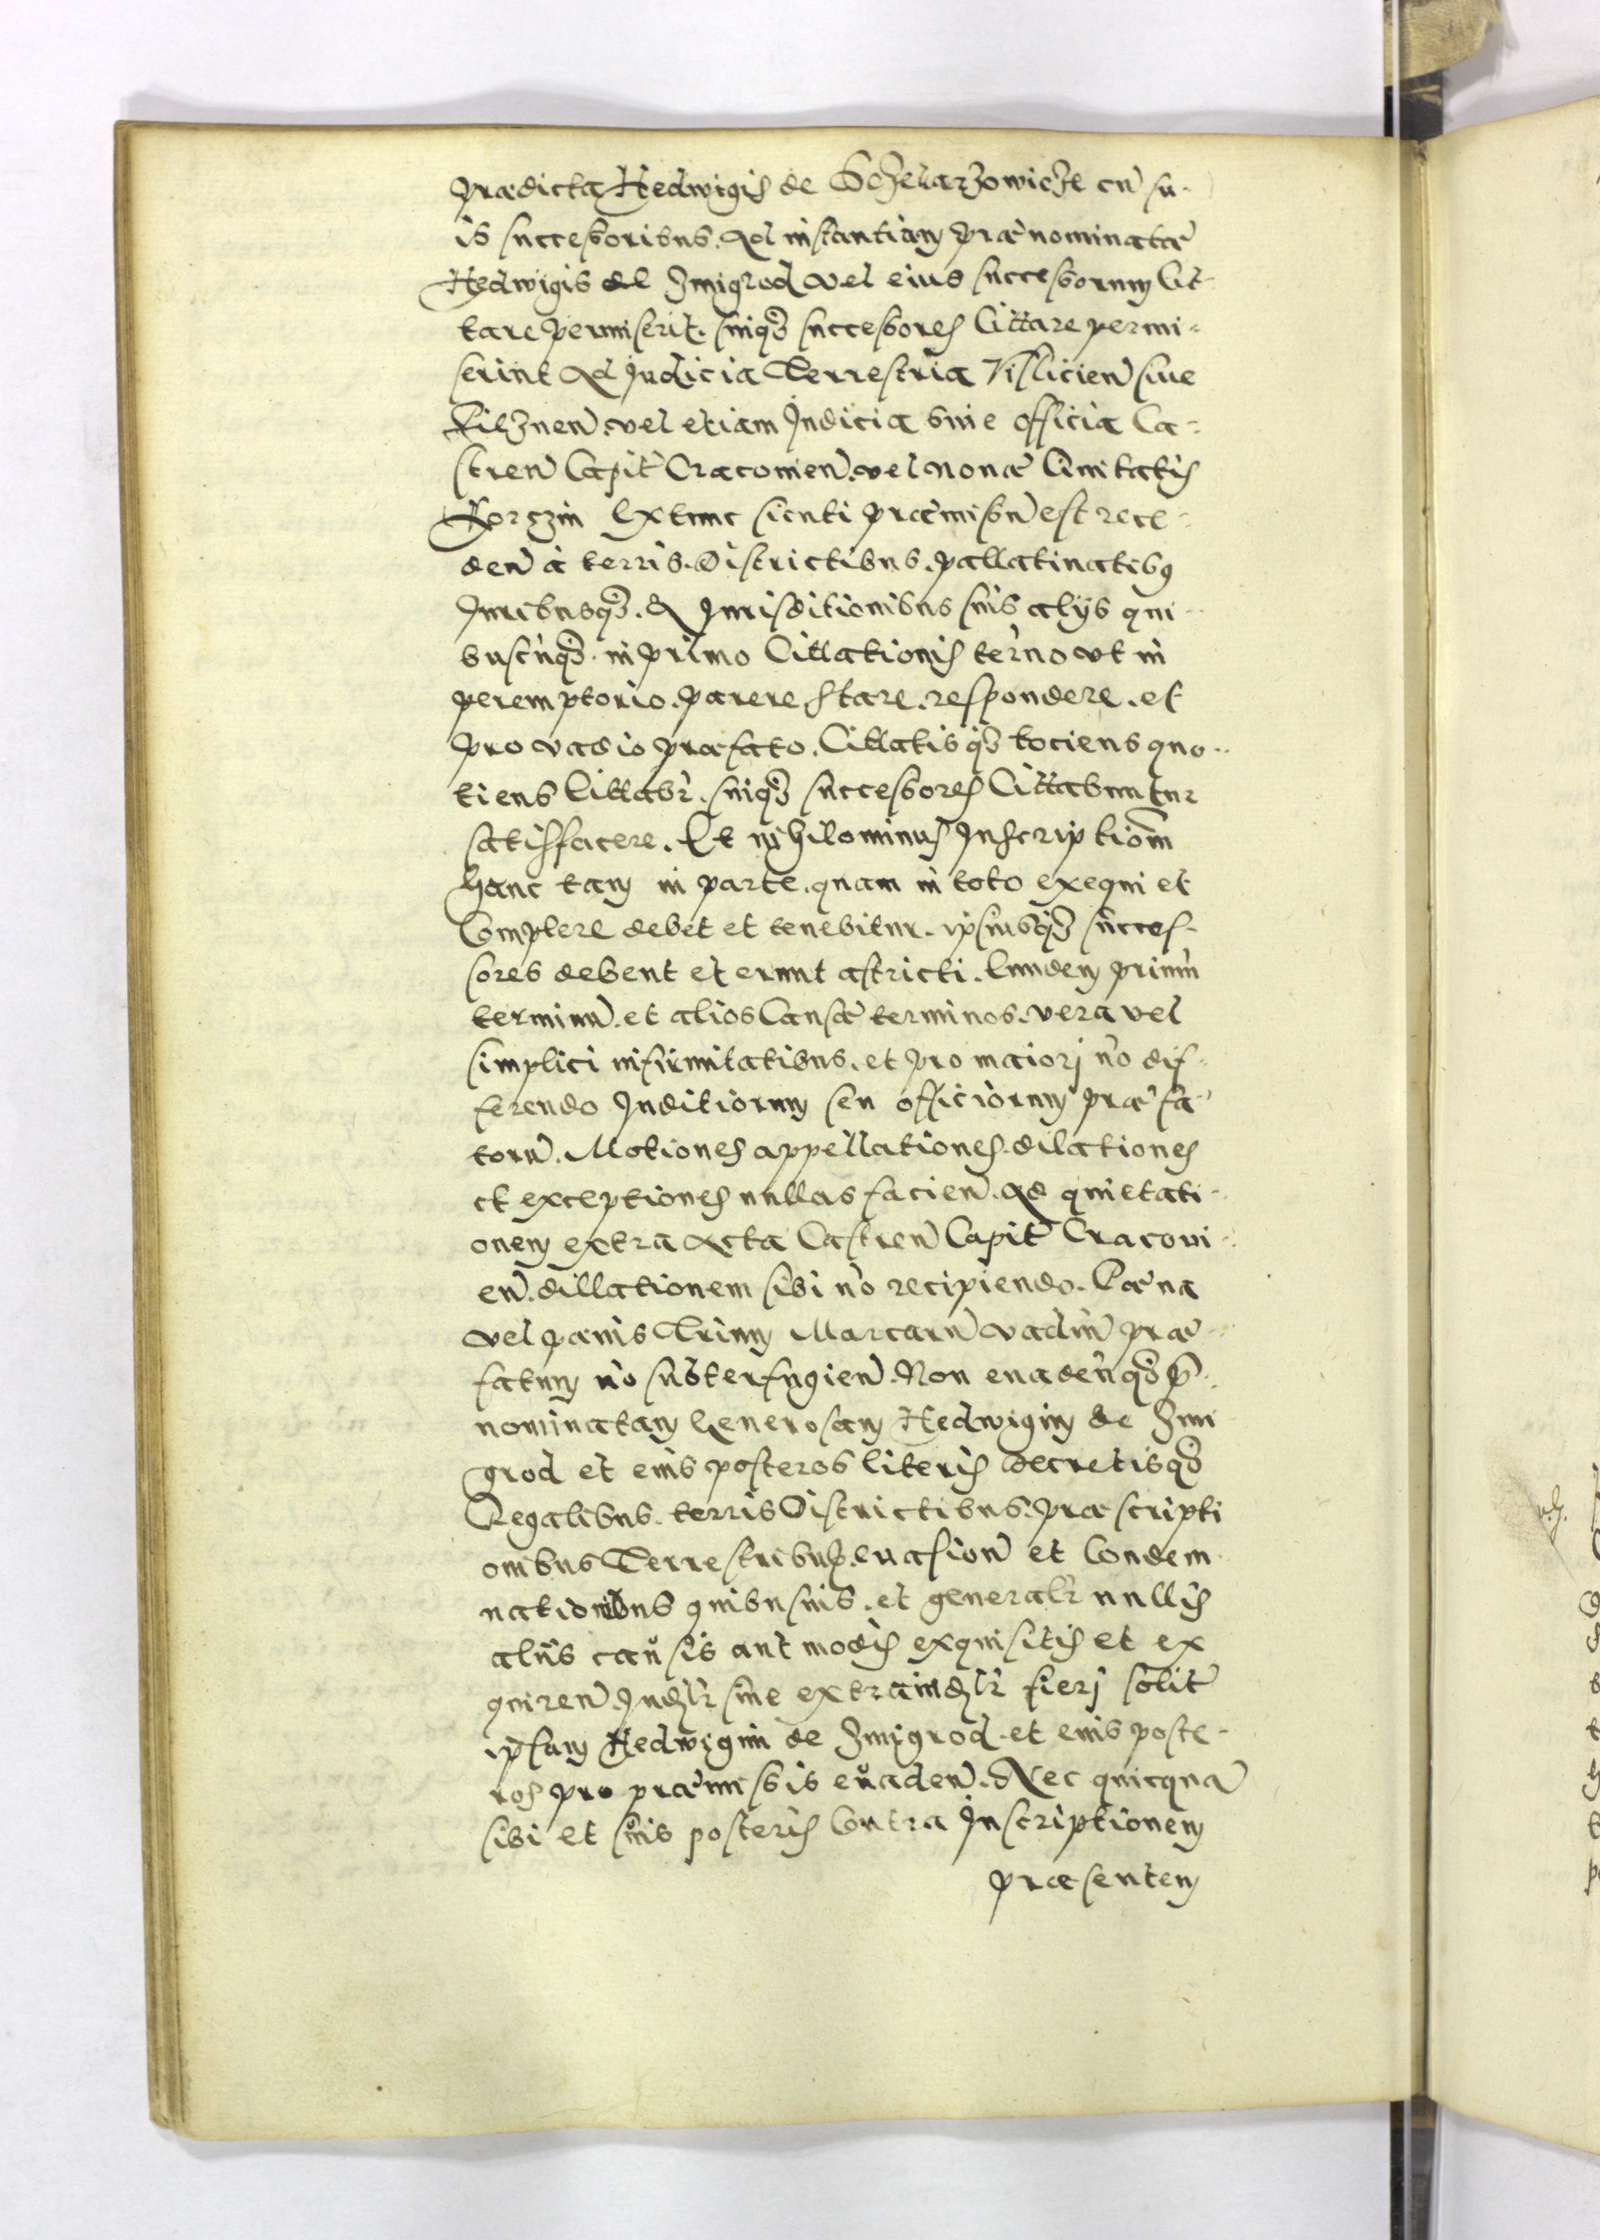 prædicta Hedwigis de Sczekarzowicze cũ su-
is successoribus. Ad instantiam prænominatæ
Hedwigis de Zmigrod vel eius successorum Cit-
tare permiserit. suiq3 successores Cittare permi-
serint Ad Judicia Terrestria Visliciens̃ siue
Pilznens̃. vel etiam Judicia siue officia Ca-
streñ Capit̃ Cracouieñ. vel nouæ Ciuitatis
Korczin Extunc sicuti præmissũ est rece-
deñ à terris. Districtibus. pallatinatibus
Juribusq3. & Jurisditionibus suis alijs qui-
buscũq3. in primo Cittationis termino vt in
peremptorio. parere stare. respondere. et
pro vadio præfato. Cittatisq3 tociens quo-
tiens Cittabr̃. suiq3 successores Cittabuntur
satisfacere. Et nihilominus Inscriptiom̃
hanc tam in parte. quam in toto exequi et
Complere debet et tenebitur. ipsiusq3 succes-
sores debent et erunt astricti. Eundem primũ
terminũ. et alios Causæ terminos. vera vel
simplici infirmitatibus. et pro maiorj nõ dif-
ferendo Juditiorum seu officiorum præfa-
torũ. Motiones appellationes. dilationes
et exceptiones nullas facieñ. Ad quietati-
onem extra Acta Castreñ Capit̃ Cracoui-
eñ. dillationem sibi nõ recipiendo. Pæna
vel pænis Trium Marcarũ vadiũ præ-
fatum nõ subterfugieñ. Non euadeñq3 p̃-
nominatam Generosam Hedwigim de Zmi
grod et eius posteros literis decretisq3
Regalibus. terris Districtibus. præscripti
onibus Terrestribus. euasioñ et Condem
nationibus quibusuis. et generalr̃ nullis
alijs causis aut modis exquisitis et ex
quireñ. Judlr̃ siue extraiudlr̃ fierj solit̃
ipsam Hedwigim de Zmigrod. et eius poste-
ros pro præmissis euadeñ. Nec quicquã
sibi et suis posteris Contra Inscriptionem
præsentem